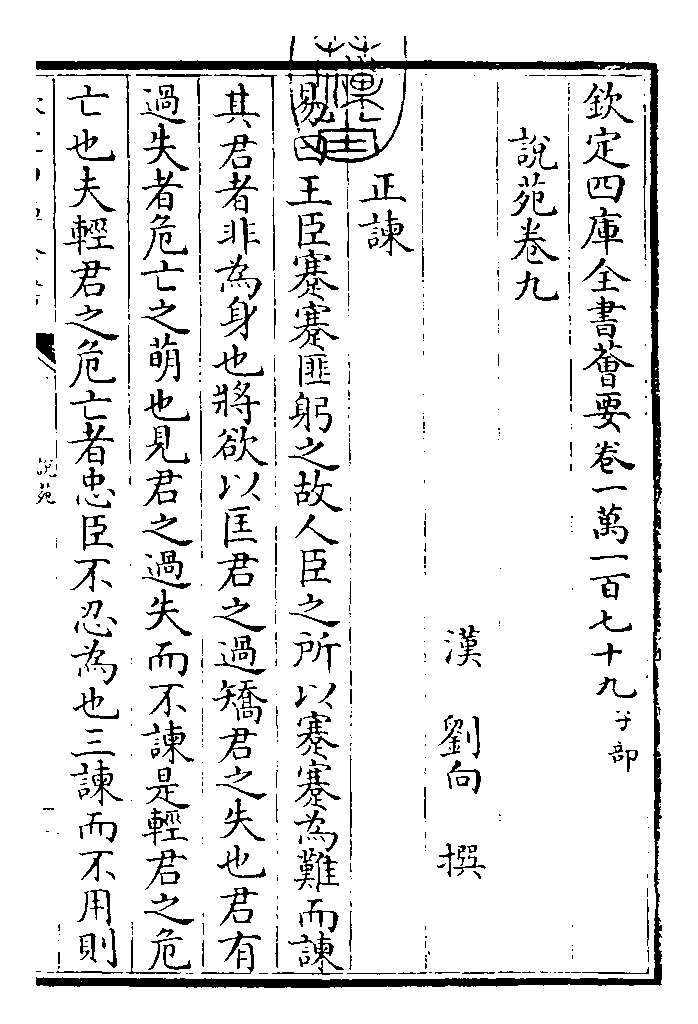 欽定四庫全書薈要卷一萬一百七十九子部
說苑卷九
漢劉向撰
正諫
易曰王臣蹇蹇匪躬之故人臣之所以蹇蹇為難而諫
其君者非為身也將欲以匡君之過矯君之失也君有
過失者危亡之萌也見君之過失而不諫是輕君之危
亡也夫輕君之危亡者忠臣不忍為也三諫而不用則
說苑
一